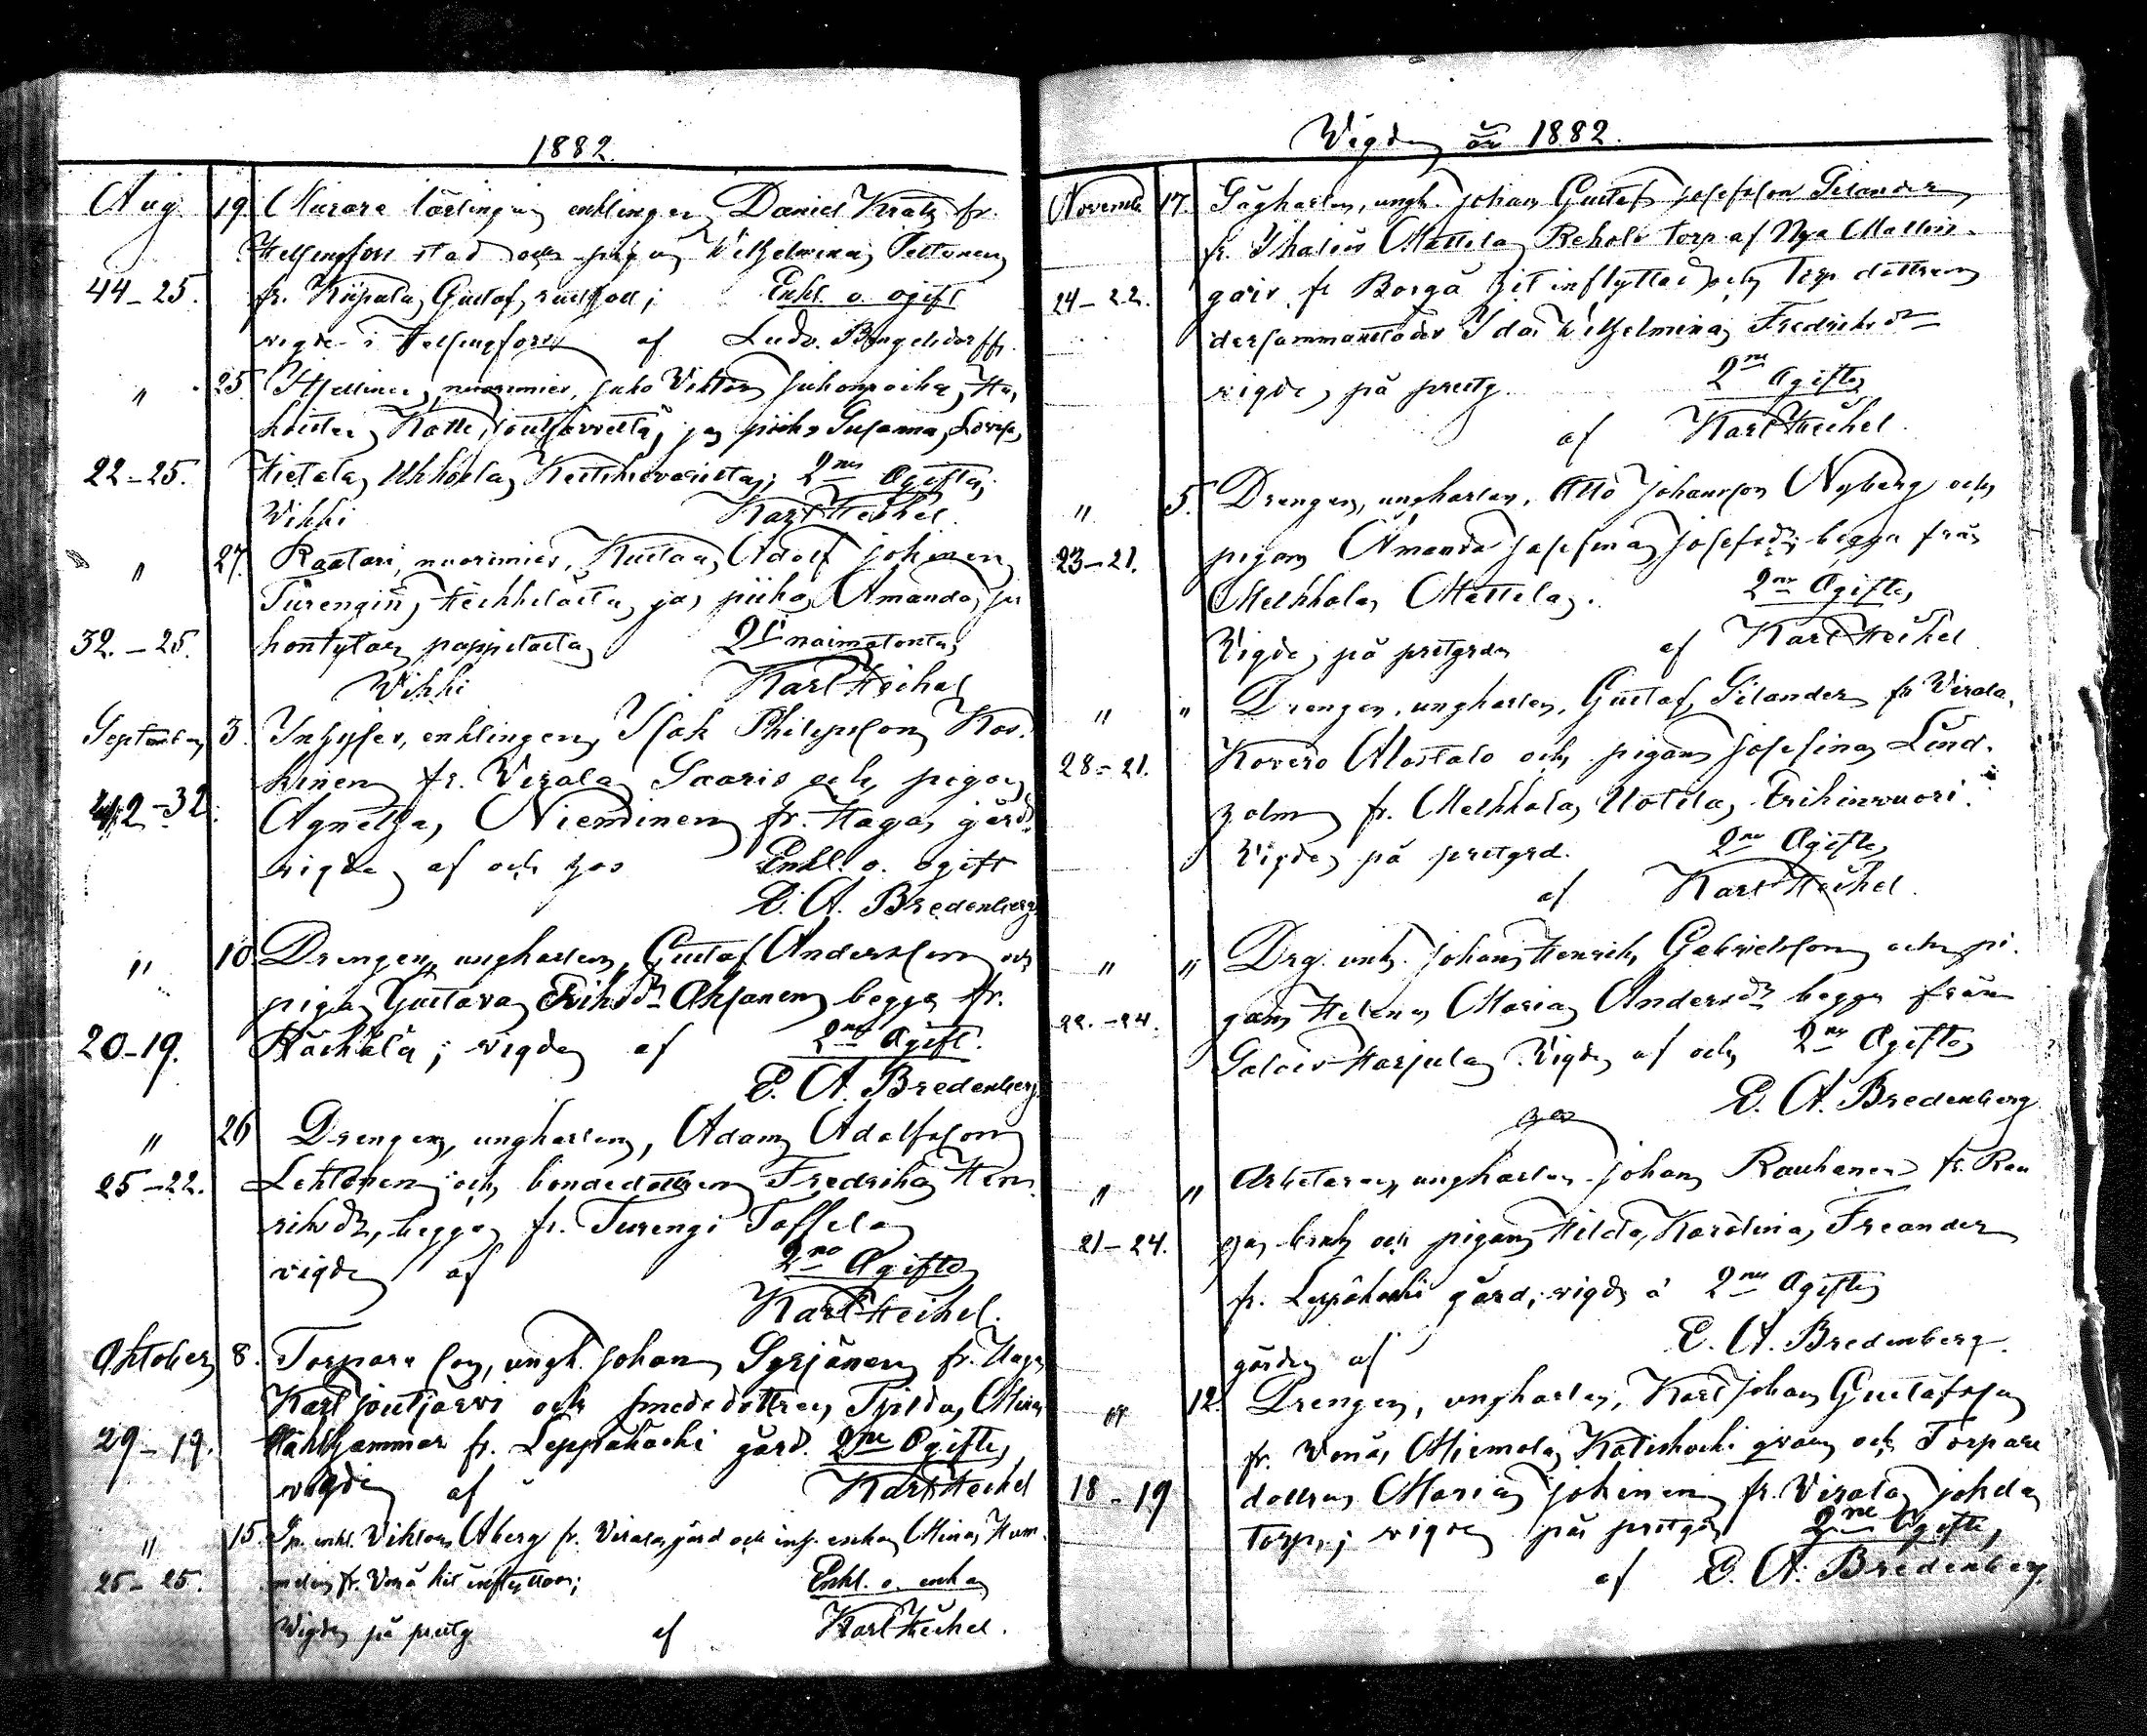 1882.
Aug. 19. Murare lärlingen enklingen Daniel Kratz fr.
Helsingfors stad och pigan Wilhelmina Peltonen
44-25. fr. Kiipala Gustaf, ; Enkl. o. ogift
vigde i Helsingfors af Ludv. Bengelsdorff.
" 25. Itsellinen, nuorimies, Juho Viktor Juhonpoika,
ja piika Susanna Lovisa
22-25. Hietala, Uhkoila, ; 2ne Ogifta,
Vihki Karl Heikel.
" 27. Räätäri, nuorimies, Kustaa Adolf Johinen
Turengin Heikkilästä, ja piika Amanda Ju
32.-25. hontytär, pappilasta 2si naimatonta,
Vihki Karl Heikel
September 3. Inhyses, enklingen, Isak Philipsson Kos-
kinen fr. Virala Saaris och pigan
42-32. Agnetha Nieminen fr. Haga gård.
vigda af och hos Enkl. o. ogift
E. A. Bredenberg
" 10. Drengen, ungkarlen, Gustaf Andersson och
pigan Gustava Eriksdr Oksanen begge fr.
20-19. ; vigda af 2ne Ogift.
E. A. Bredenberg.
" 26 Drengen, ungkarlen, Adam Adolfsson
25-22. Lehtonen och bondedottren Fredrika Hen-
riksdr, begge fr. Turengi Taffela
vigda af 2ne Ogifta
Karl Heikel.
Oktober 8. Torpare son, ungk. Johan Syrjänen fr. Haga
Karl Joutjärvi och smeds dottren Tjilda Maria
29-19. Ståhlhammar fr. Leppäkoski gård. 2ne Ogifta,
vigda af Karl Heikel
" 15. Sp. enkl. Viktor Åberg fr. Virala gård och inh. enkan Mina Hum-
25-25. melin fr. Vonå hit inflyttad; Enkl. o. enkan
Vigda på prestg af Karl Heikel.
Vigda år 1882.
Novemb. 17. Sågkarlen, ungk. Johan Gustaf Josefsson Silander
fr. Mattila Rekola torp af Nya
24-22. gård fr Borgå hit inflyttad och torp. dottren
dersammastädes Ida Wilhelmina Fredriksdr
vigde på prestg. 2ne Ogifta
af Karl Heikel.
" 5. Drengen, ungkarlen, Otto Johansson Nyberg och
23-21. pigan Amanda Josefina Josefsdr, begge från
Melkkola Mattila. 2ne Ogifta,
Vigde på prstgrden af Karl Heikel
" " Drengen, ungkarlen, Gustaf Silander fr Virala,
28-21. Kovero Alastalo och pigan Josefina Lind-
holm fr. Melkkola Uotila Erikinvuori.
Vigde på prstgrd. 2ne Ogifta
af Karl Heikel.
" " Drg. unk. Johan Henrik Gabrielsson och pi-
22.-24. gan Helena Maria Andersdr begge från
Harjula Vigde af och 2ne Ogifta
hos E. A. Bredenberg
" " Arbetaren, ungkarlen Johan Rauhanen fr. Rau
21-24. ha bruk och pigan Hilda Karolina Freander
fr. Leppäkoski gård; vigde å 2ne Ogifta
gården af E. A. Bredenberg.
" 12. Drengen, ungkarlen, Karl Johan Gustafsson
fr. Vonå Miemola Katiskoski qvarn och Torpare
18-19 dottren Maria Johinen fr. Virala Johda
torp, ; vigde på prstgrd 2ne Ogifta,
af E. A. Bredenberg.